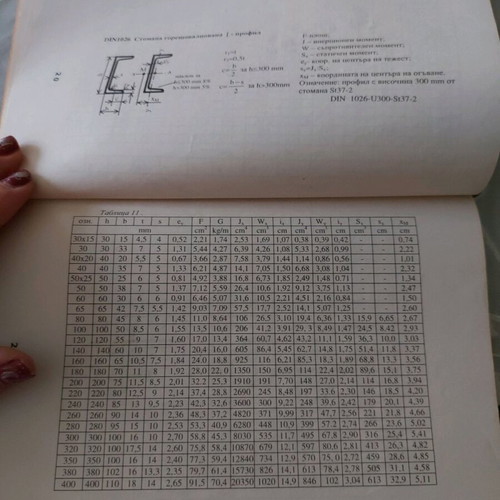 DIN1026 Стомана горещовалцована [ - профил
F-площ;
I – инерционен момент;
W – съпротивителен момент;
Sₓ – статичен момент;
eᵧ- коор. на центъра на тежест;
sₓ=Jₓ:Sₓ;
xᴍ – координата на центъра на огъване.
Означение: профил с височина 300 mm от
стомана St37-2
DIN 1026-U300-St37-2
за h≤300 mm
за h>300mm
20
Таблица 11.
озн. h b t s eᵧ F G Jₓ Wₓ iₓ Jᵧ Wᵧ iᵧ Sₓ sₓ xᴍ
mm cm cm² kg/m cm⁴ cm³ cm cm⁴ cm³ cm cm³ cm cm
30x15 30 15 4,5 4 0,52 2,21 1,74 2,53 1,69 1,07 0,38 0,39 0,42 - - 0,74
30 30 33 7 5 1,31 5,44 4,27 6,39 4,26 1,08 5,33 2,68 0,99 - - 2,22
40x20 40 20 5,5 5 0,67 3,66 2,87 7,58 3,79 1,44 1,14 0,86 0,56 - - 1,01
40 40 35 7 5 1,33 6,21 4,87 14,1 7,05 1,50 6,68 3,08 1,04 - - 2,32
50x25 50 25 6 5 0,81 4,92 3,86 16,8 6,73 1,85 2,49 1,48 0,71 - - 1,34
50 50 38 7 5 1,37 7,12 5,59 26,4 10,6 1,92 9,12 3,75 1,13 - - 2,47
60 60 30 6 6 0,91 6,46 5,07 31,6 10,5 2,21 4,51 2,16 0,84 - - 1,50
65 65 42 7,5 5,5 1,42 9,03 7,09 57,5 17,7 2,52 14,1 5,07 1,25 - - 2,60
80 80 45 8 6 1,45 11,0 8,64 106 26,5 3,10 19,4 6,36 1,33 15,9 6,65 2,67
100 100 50 8,5 6 1,55 13,5 10,6 206 41,2 3,91 29,3 8,49 1,47 24,5 8,42 2,93
120 120 55 9 7 1,60 17,0 13,4 364 60,7 4,62 43,2 11,1 1,59 36,3 10,0 3,03
140 140 60 10 7 1,75 20,4 16,0 605 86,4 5,45 62,7 14,8 1,75 51,4 11,8 3,37
160 160 65 10,5 7,5 1,84 24,0 18,8 925 116 6,21 85,3 18,3 1,89 68,8 13,3 3,56
180 180 70 11 8 1,92 28,0 22,0 1350 150 6,95 114 22,4 2,02 89,6 15,1 3,75
200 200 75 11,5 8,5 2,01 32,2 25,3 1910 191 7,70 148 27,0 2,14 114 16,8 3,94
220 220 80 12,5 9 2,14 37,4 28,8 2690 245 8,48 197 33,6 2,30 146 18,5 4,20
240 240 85 13 9,5 2,23 42,3 32,6 3600 300 9,22 248 39,6 2,42 179 20,1 4,39
260 260 90 14 10 2,36 48,3 37,2 4820 371 9,99 317 47,7 2,56 221 21,8 4,66
280 280 95 15 10 2,53 53,3 40,9 6280 448 10,9 399 57,2 2,74 266 23,6 5,02
300 300 100 16 10 2,70 58,8 45,3 8030 535 11,7 495 67,8 2,90 316 25,4 5,41
320 320 100 17,5 14 2,60 75,8 58,4 10870 679 12,1 597 80,6 2,81 413 26,3 4,82
350 350 100 16 14 2,40 77,3 59,4 12840 734 12,9 570 75,0 2,72 459 28,6 4,85
380 380 102 16 13,3 2,35 79,7 61,4 15730 826 14,1 613 78,4 2,78 505 31,1 4,58
400 400 110 18 14 2,65 91,5 70,4 20350 1020 14,9 846 102 3,04 613 32,9 5,11